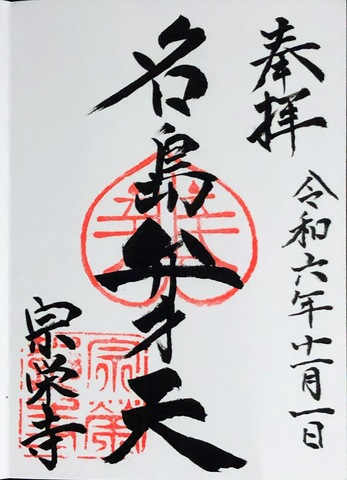 奉拝
令和六年十一月一日
名島弁才天
宗栄寺